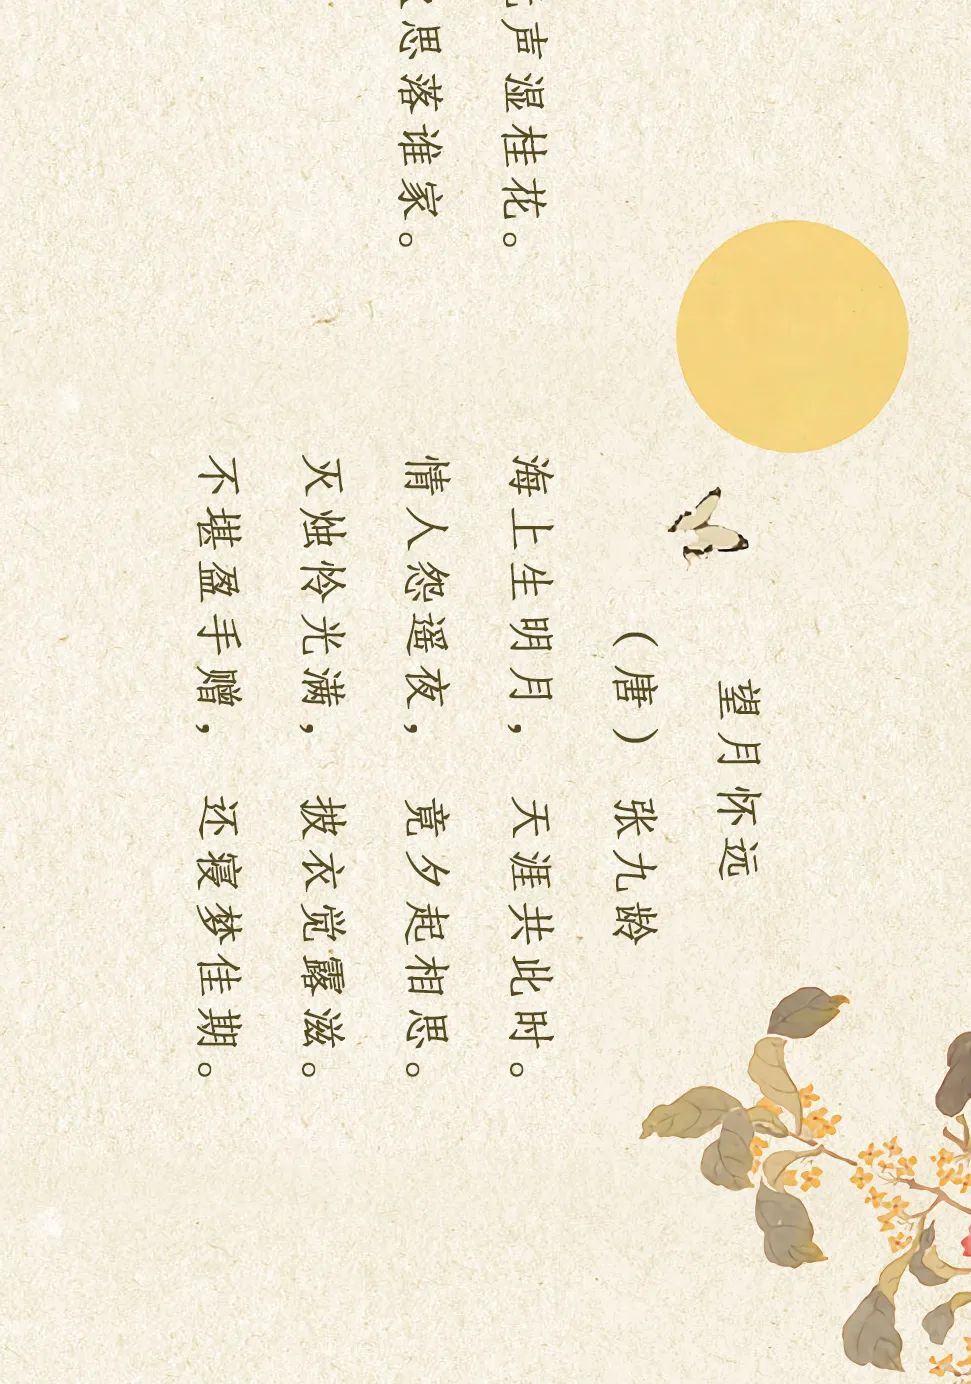 声湿桂花。
思落谁家。
望月怀远
（唐）张九龄
海上生明月，天涯共此时。
情人怨遥夜，竟夕起相思。
灭烛怜光满，披衣觉露滋。
不堪盈手赠，还寝梦佳期。